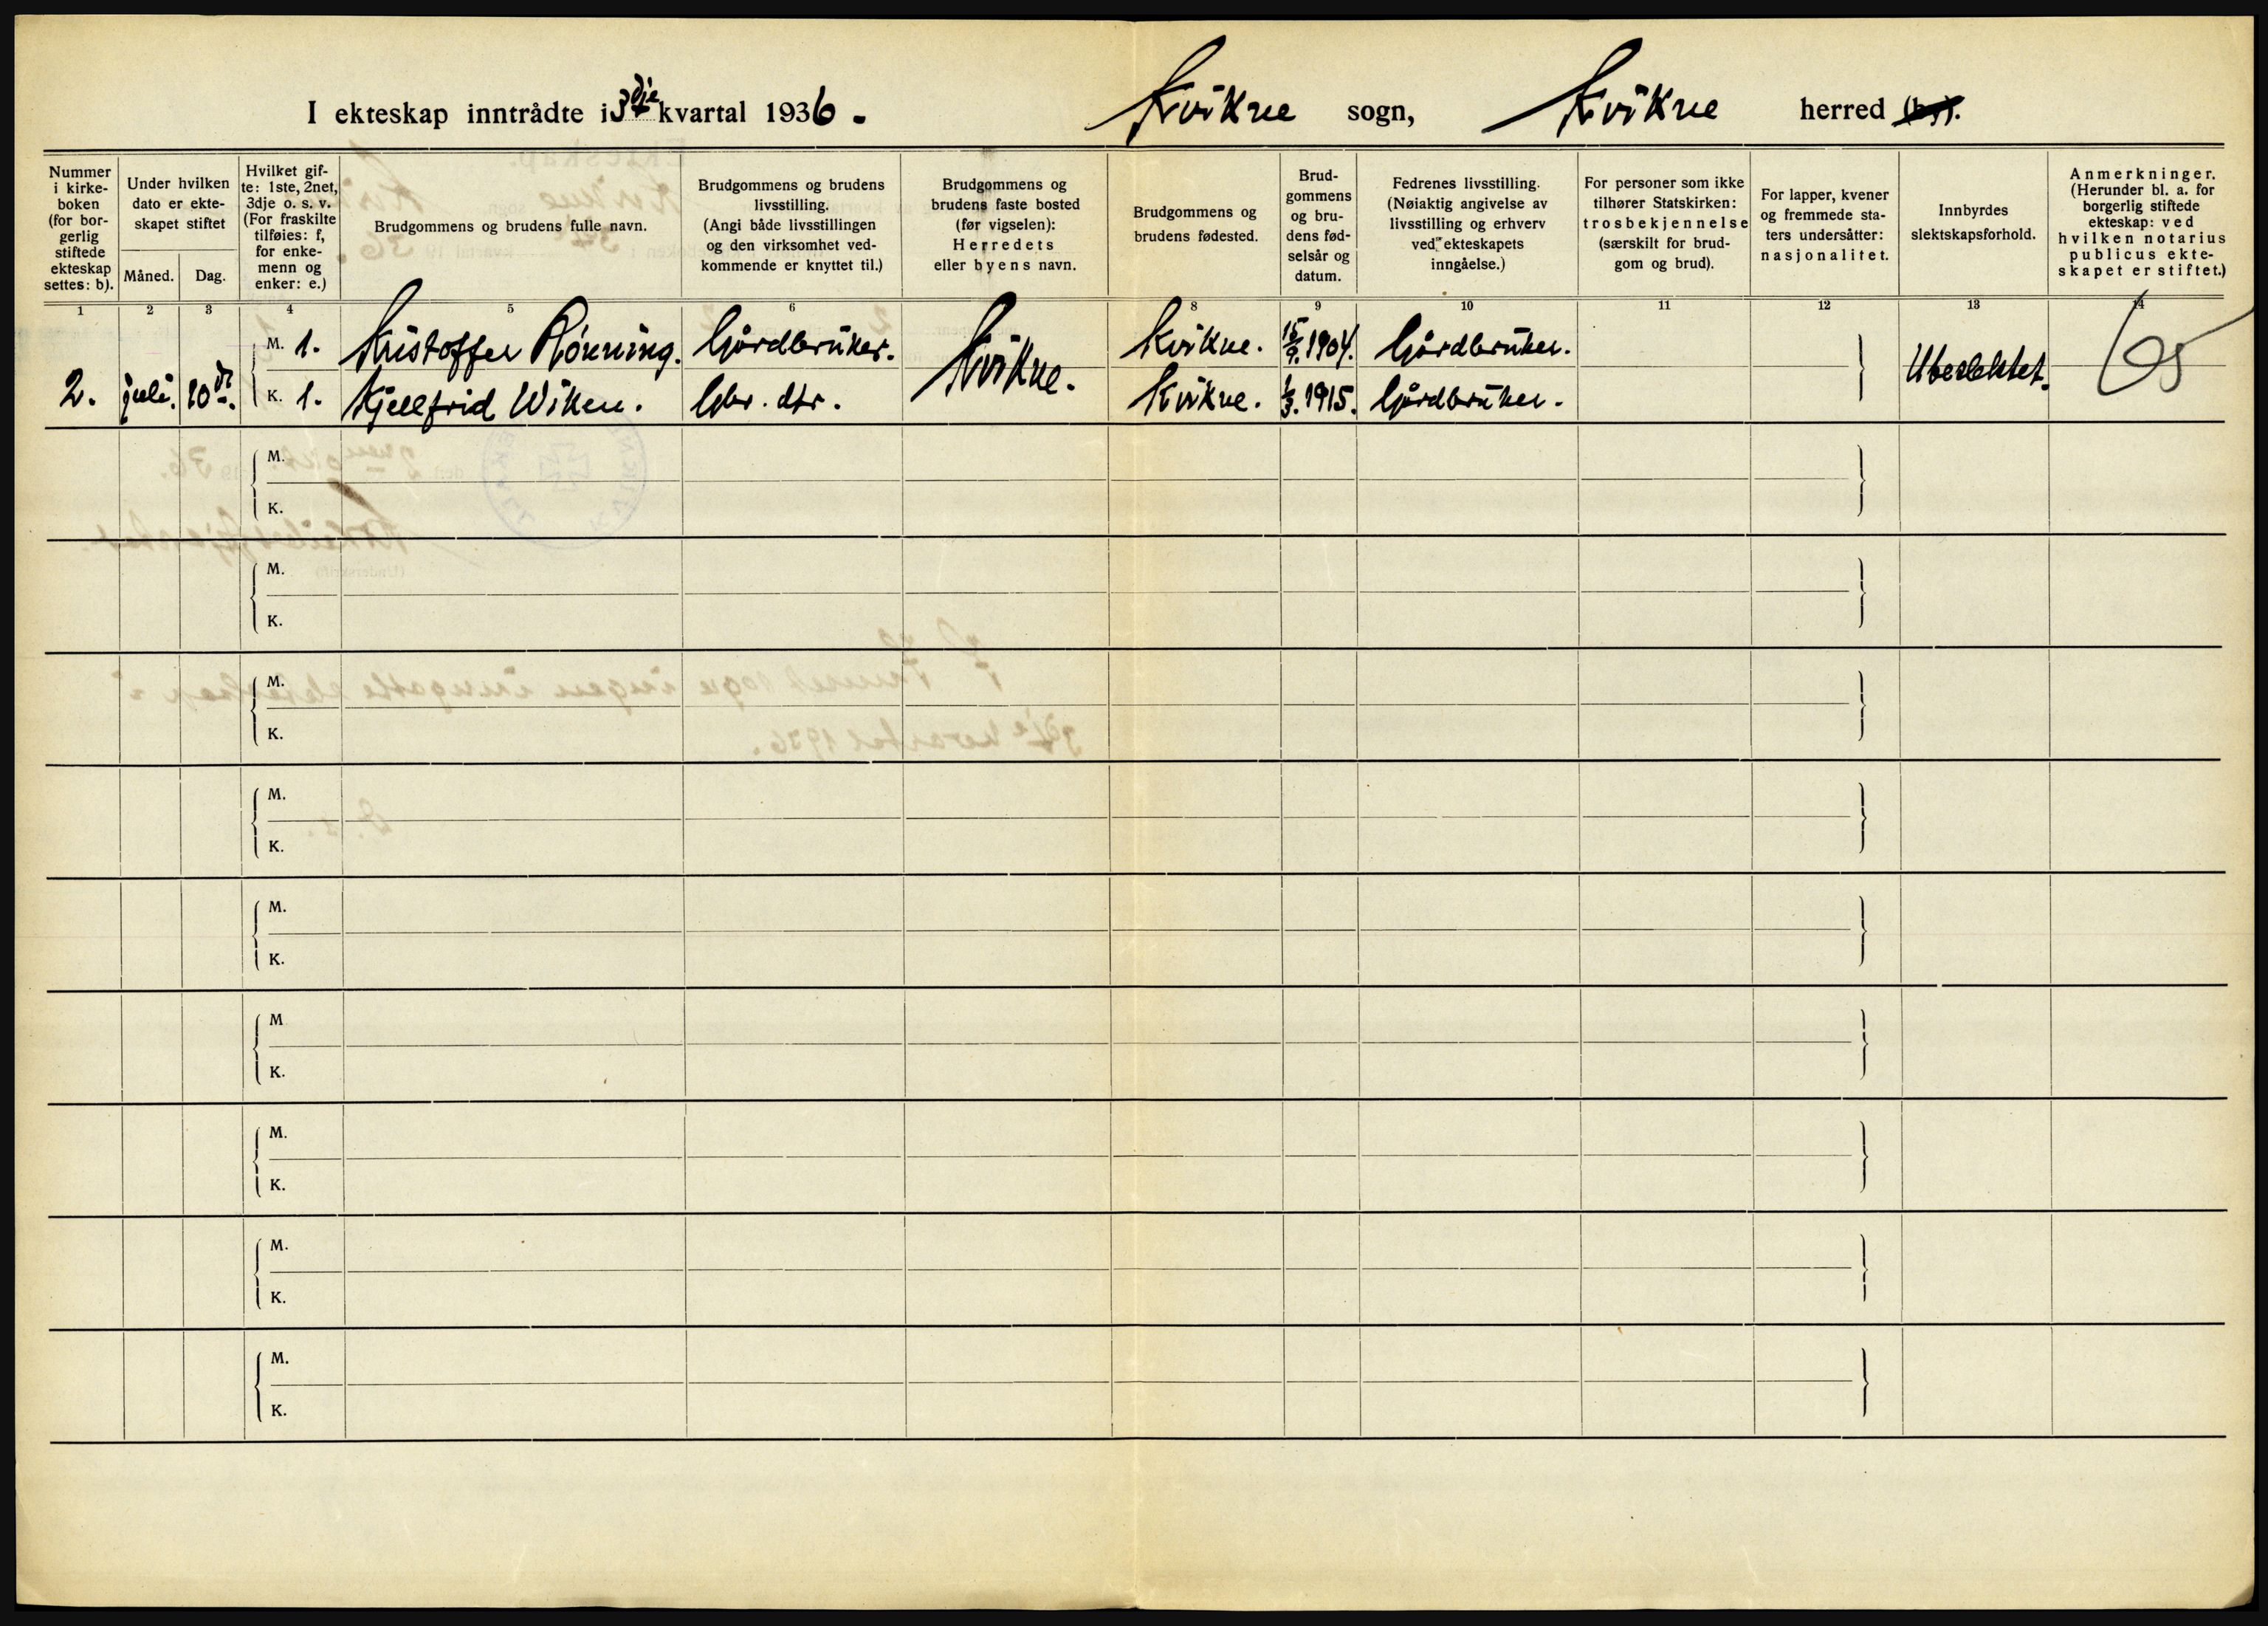 I ekteskap inntrådte i 3dje kvartal 1936. Kvikne sogn, Kvikne herred
Nummer i kirke-boken (for bor-gerlig stiftede ekteskap settes: b).
Under hvilken dato er ekte-skapet stiftet
Måned. Dag.
Hvilket gif-te: 1ste, 2net, 3dje o. s. v. (For fraskilte tilføies: f, for enke-menn og enker: e.)
Brudgommens og brudens fulle navn.
Brudgommens og brudens livsstilling. (Angi både livsstillingen og den virksomhet ved-kommende er knyttet til.)
Brudgommens og brudens faste bosted (før vigselen): Herredets eller byens navn.
Brudgommens og brudens fødested.
Brud-gommens og bru-dens fød-selsår og datum.
Fedrenes livsstilling. (Nøiaktig angivelse av livsstilling og erhverv ved ekteskapets inngåelse.)
For personer som ikke tilhører Statskirken: trosbekjennelse (særskilt for brud-gom og brud).
For lapper, kvener og fremmede sta-ters undersåtter: nasjonalitet.
Innbyrdes slektskapsforhold.
Anmerkninger. (Herunder bl. a. for borgerlig stiftede ekteskap: ved hvilken notarius publicus ekte-skapet er stiftet.)
1 2 3 4 5 6 8 9 10 11 12 13 14
M. 1. Kristoffer Rönning. Gårdbruker. Kvikne. Kvikne. 15/9. 1904. Gårdbruker.
2. juli. K. 1. Kjellfrid Wiken. Gbr. dtr. Kvikne. 1/3. 1915. Gårdbruker. Ubeslektet.
M.
K.
M.
K.
M.
K.
M.
K.
M.
K.
M
K.
M.
K.
M.
K.
M.
K.